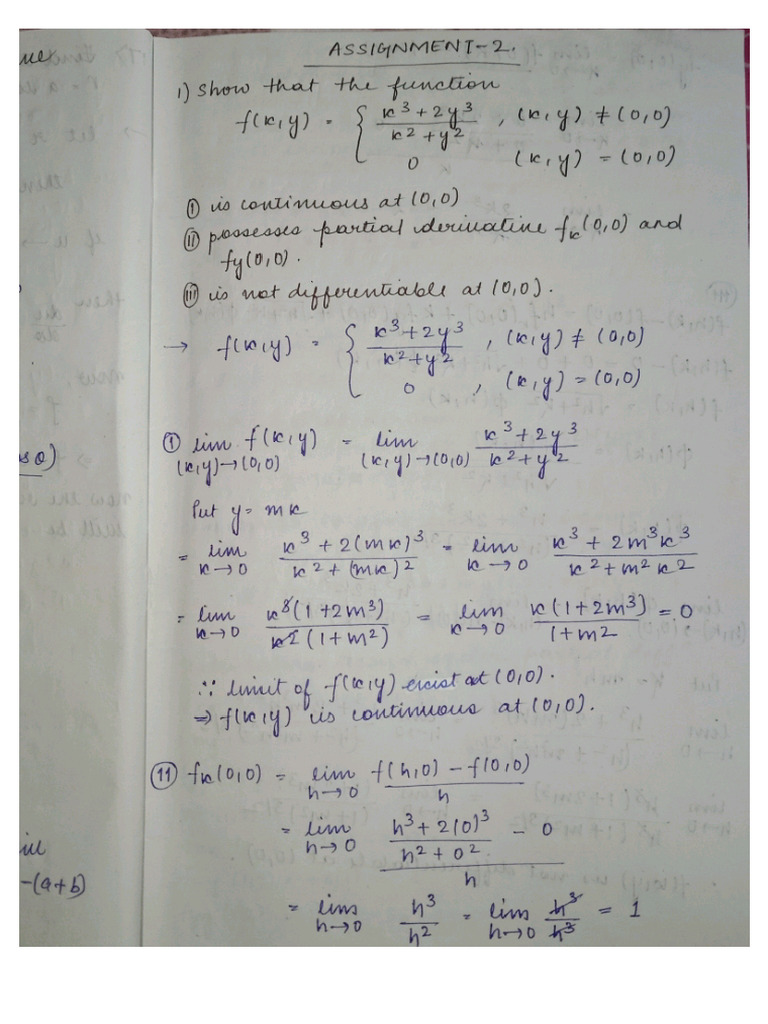 ASSIGNMENT-2.
1) Show that the function
f(x,y) = { x³+2y³ / x²+y² , (x,y) ≠ (0,0)
0 (x,y) = (0,0)
(i) is continuous at (0,0)
(ii) possesses partial derivative fx(0,0) and
fy(0,0).
(iii) is not differentiable at (0,0).
→ f(x,y) = { x³+2y³ / x²+y² , (x,y) ≠ (0,0)
0 , (x,y) = (0,0)
(i) lim (x,y)→(0,0) f(x,y) = lim (x,y)→(0,0) x³+2y³ / x²+y²
Put y = mx
= lim x→0 x³+2(mx)³ / x²+(mx)² = lim x→0 x³+2m³x³ / x²+m²x²
= lim x→0 x³(1+2m³) / x²(1+m²) = lim x→0 x(1+2m³) / 1+m² = 0
∵ limit of f(x,y) exist at (0,0).
⇒ f(x,y) is continuous at (0,0).
(11) fx(0,0) = lim h→0 f(h,0) – f(0,0) / h
= lim h→0 h³+2(0)³ / h²+0² – 0 / h
= lim h→0 h³ / h² = lim h→0 h³ / h³ = 1
-(a+b)